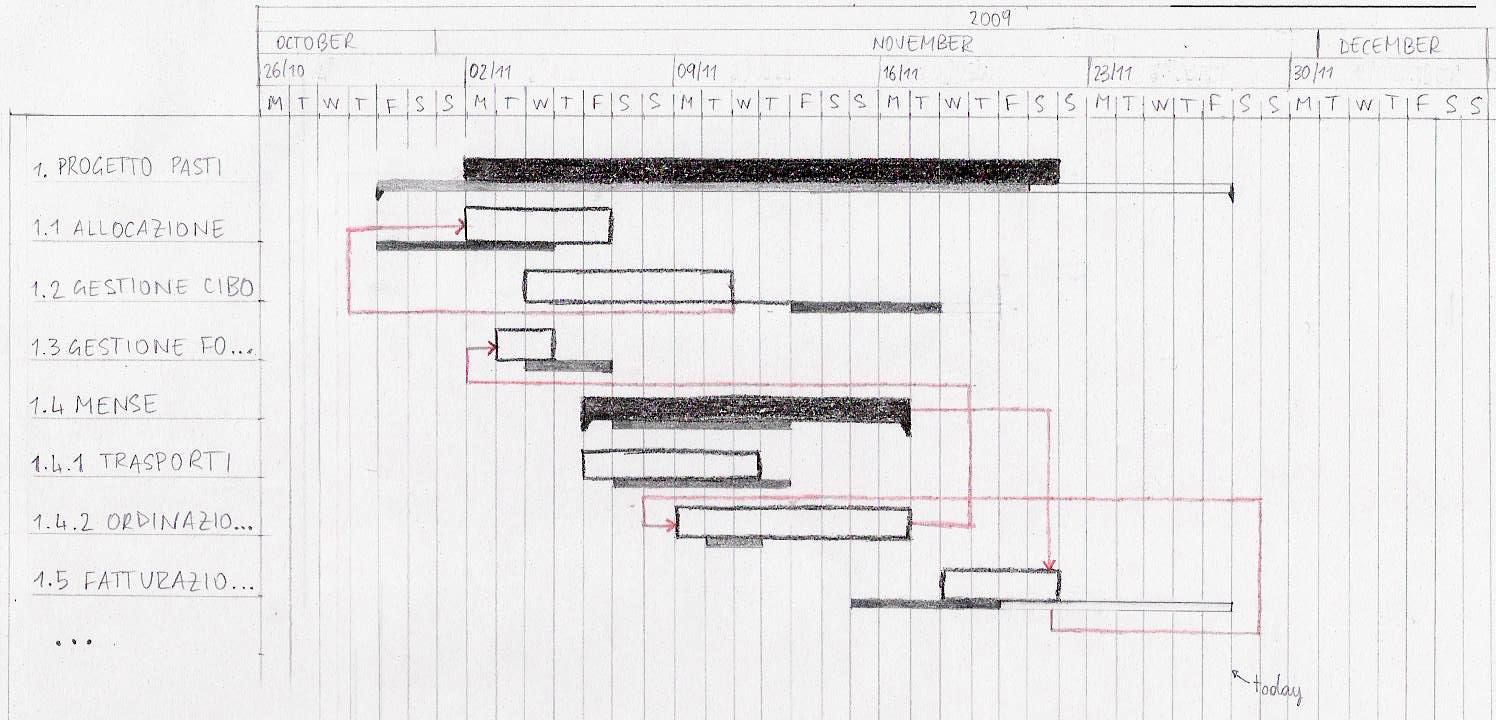 2009
OCTOBER NOVEMBER DECEMBER
26/10 02/11 09/11 16/11 23/11 30/11
M T W T F S S M T W T F S S M T W T F S S M T W T F S S M T W T F S S M T W T F S S
1. PROGETTO PASTI
1.1 ALLOCAZIONE
1.2 GESTIONE CIBO
1.3 GESTIONE FO...
1.4 MENSE
1.4.1 TRASPORTI
1.4.2 ORDINAZIO...
1.5 FATTURAZIO...
...
today